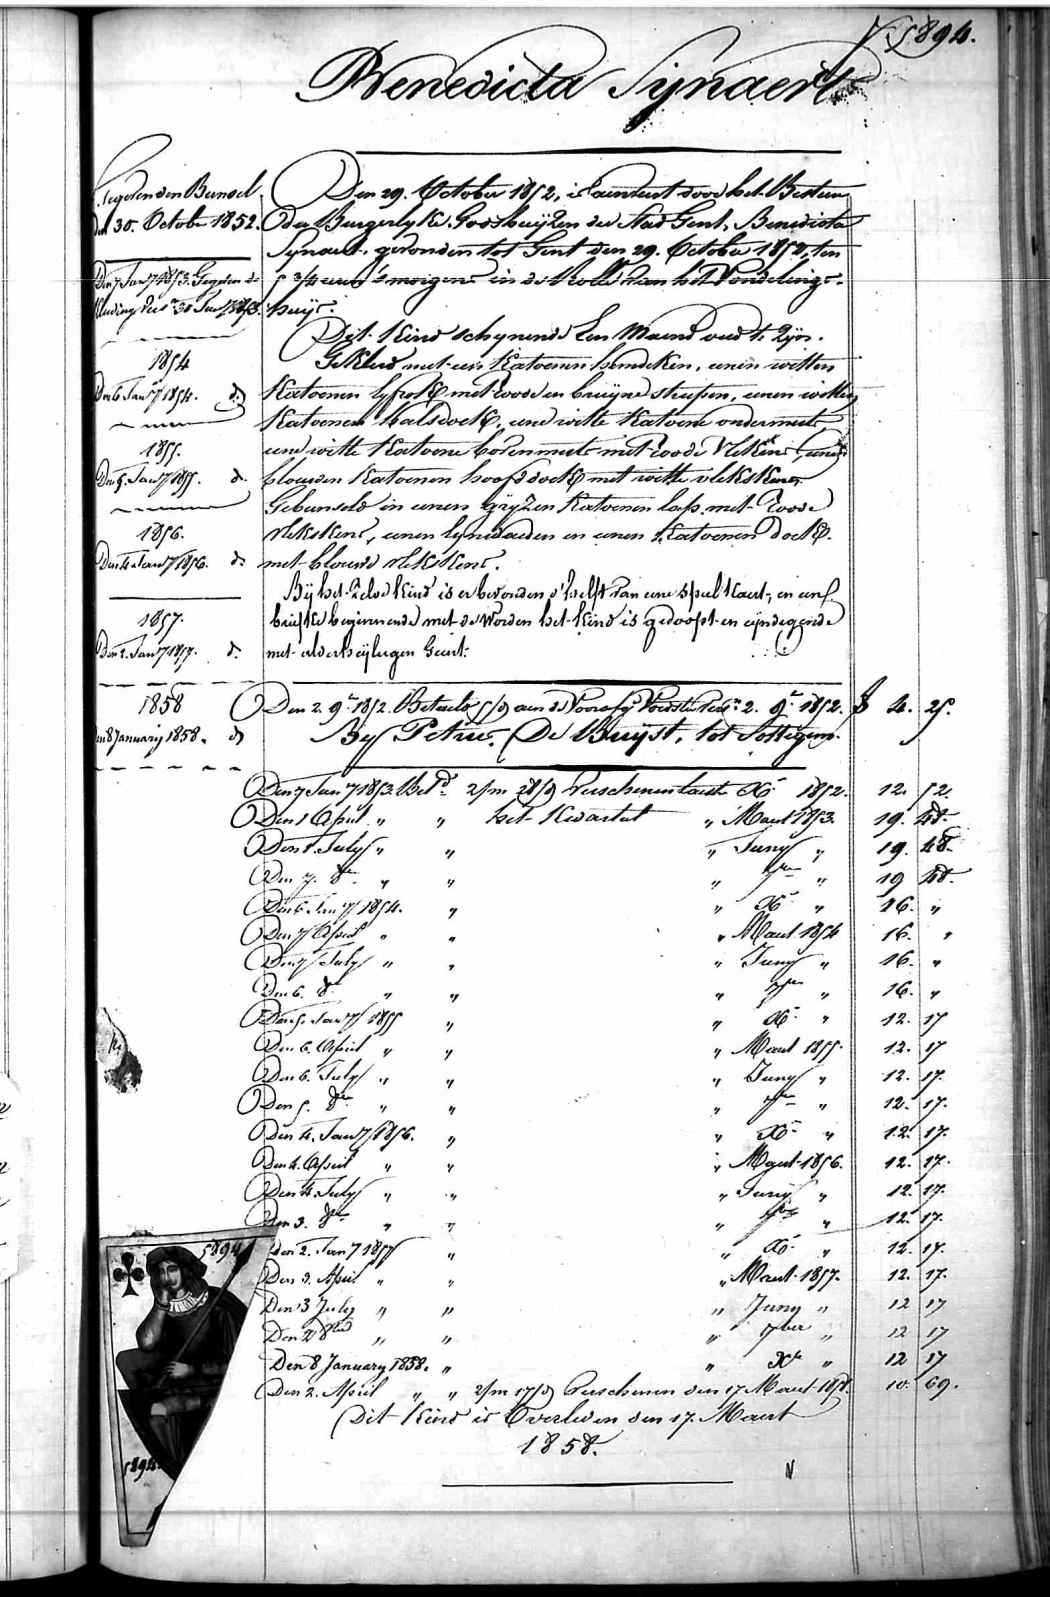 5894.
Benedicta Synaert
Gegeven den Bunsel
den 30. October 1852.
Den 7 Jany 1853. Gegeven de
Kleding
1854
Den 6 Jany 1854. do
1855.
Den 5. Jany 1855. do
1856.
Den 4 Jany 1856. do
1857.
Den 2. Jany 1857. do
1858
den 8 January 1858. do
Den 29. October 1852, is aenveert door het Bestuer
der Burgerlyke Godshuyzen der Stad Gent, Benedicta
Synaert. gevonden tot Gent den 29. October 1852, ten
5 3/4 uren 's morgens in de Rolle van het Vondeling-
huys.
Dit Kind schynende een Maend oud te zyn.
Gekleed met een Katoenen hemdeken, eenen witten
Katoenen lyfrok met roode en bruyne streepen, eenen witten
Katoenen halsdoek, eene witte Katoene ondermuts,
eene witte Katoene bovenmuts met roode vlekskens, eenen
blauwen Katoenen hoofddoek met witte vlekskens.
Gebunseld in eenen gryzen Katoenen lap met roode
vlekskens, eenen lynwaeden en eenen Katoenen doek
met blauwe vlekskens.
By het zelve Kind is er bevonden d'helft van eene speelkaert, en een
briefke beginnende met de Worden het Kind is gedoopt en eyndegende
met alderheyligen Geest.
Den 2. 9er 1852. Betaeld aen de Voorsz Voedster 2. 9er 1852. f 4. 25.
By Petrus De Buyst, tot Sottegem.
Den 7 Jany 1853. Betd 2/m 28/d Verschenen laest Xr 1852. 12. 52.
Den 1 April " " het Kwartael " Maert 1853. 19. 48.
Den 1. July " " " Juny " 19. 48.
Den 7. 8er " " " 7ber " 19 48.
Den 6 Jany 1854. " " Xr " 16. "
Den 7 April " " " Maert 1854 16. "
Den 7 July " " " Juny " 16. "
Den 6. 8er " " " 7ber " 16. "
Den 5. Jany 1855 " " Xr " 12. 17
Den 6. April " " " Maert 1855. 12. 17
Den 6. July " " " Juny " 12. 17.
Den 5. 8er " " " 7ber " 12. 17.
Den 4. Jany 1856. " " Xr " 12. 17.
Den 4. April " " " Maert 1856. 12. 17.
Den 4 July " " " Juny " 12. 17.
Den 3. 8er " " " 7ber " 12. 17.
Den 2. Jany 1857 " " Xr " 12. 17.
Den 3. April " " " Maert 1857. 12. 17.
Den 3 July " " " Juny " 12 17
Den 2 8ber " " " 7ber " 12 17
Den 8 January 1858. " " Xr " 12 17
Den 2. April " " 2/m 17/d Verschenen den 17 Maert 1858. 10. 69.
Dit Kind is Overleden den 17. Maert
1858.
5894
5894